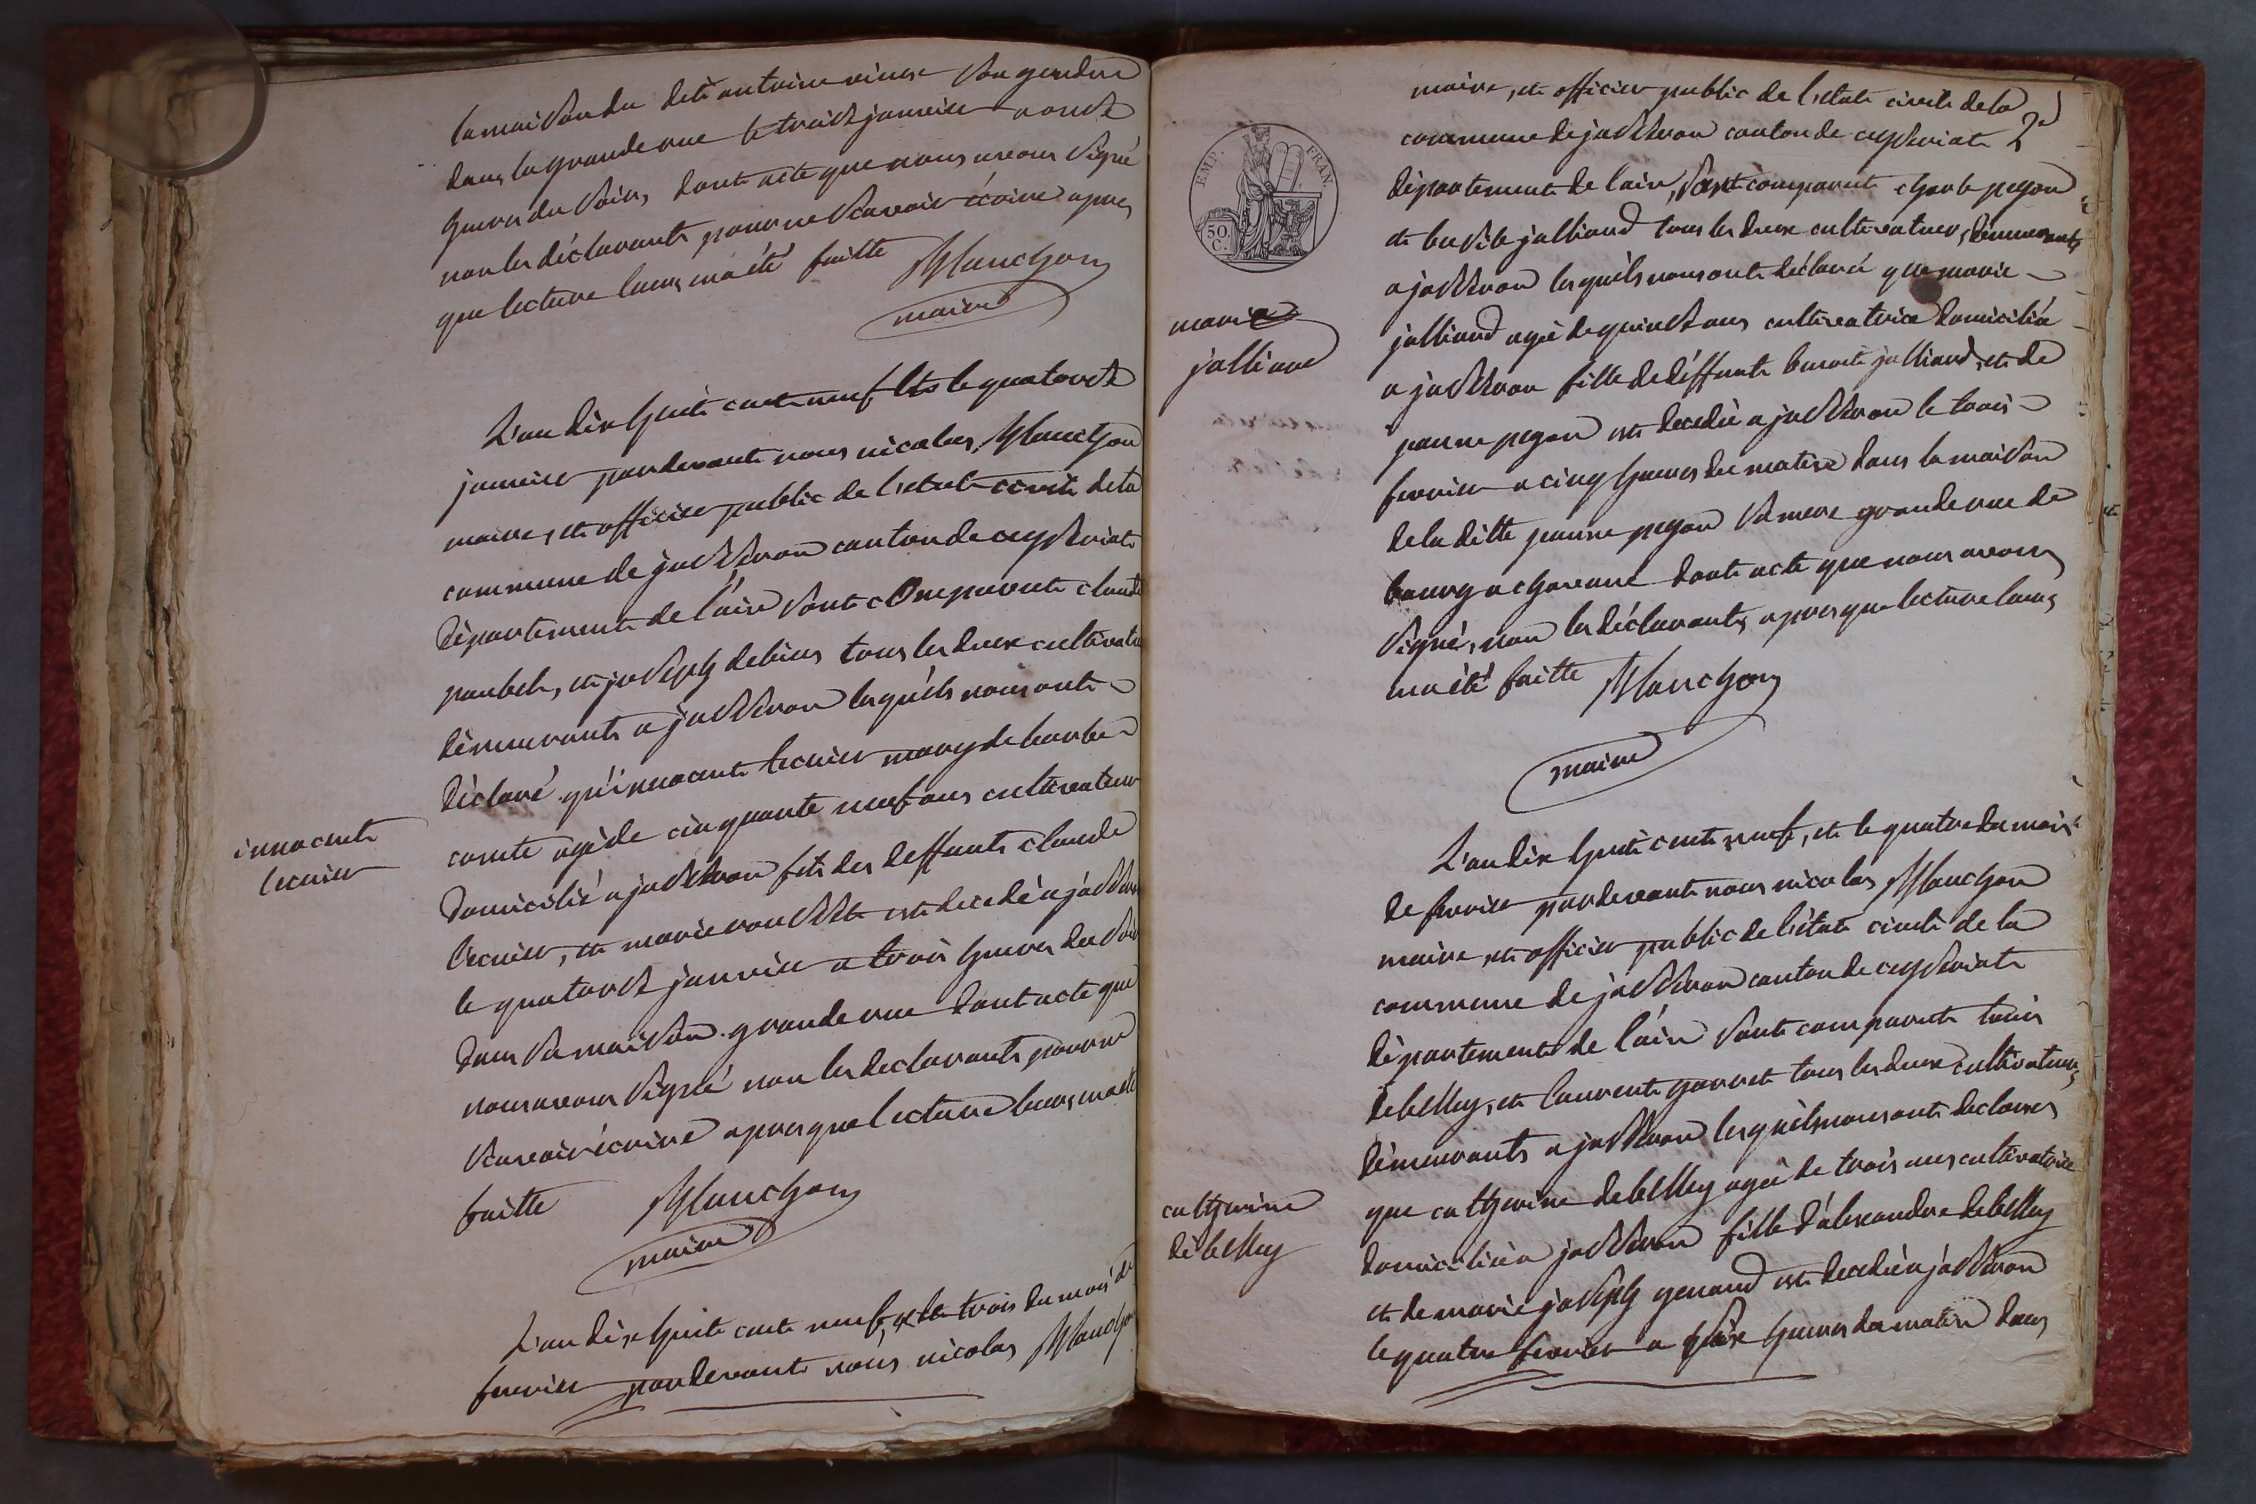 la maison du dit antoine vieux son gendre
dans la grande rue le treize janvier a onze
heures du soir, dont acte que nous avons signé
non les déclarants pour ne scavoir écrire apres
que lecture leurs má été faitte Manchon
maire
L'an dix huit cent neuf le quatorze
janvier pardevant nous nicolas Manchon
maire, et officier public de l'etat civil de la
commune de jasseron canton de ceyzeriat
département de l'ain sont comparut claude
et joseph debias tous les deux cultivateurs
démeurants a jasseron lesquéls nous ont
déclaré qu'innocent lecuier mary de barbe
comte agé de cinquante neuf ans cultivateur
domicilié a jasseron fils des deffunts claude
lecuier, et marie rousset est decedé a jasseron
le quatorze janvier a trois heures du soir
dans sa maison grande rue dont acte que
nous avons signé non les declarants pour ne
scavoir écrire apres que lecture leurs má été
faitte Manchon
maire
innocent
lecuier
L'an dix huit cent neuf, et le trois du mois de
fevrier pardevant nous nicolas Manchon
2e
maire, et officier public de l'etat civil de la
commune de jasseron canton de ceyzeriat
département de l'ain, sont comparut charle peyon
et basile jalliand tous les deux cultivateurs, démeurants
a jasseron lesquéls nous ont déclaré que marie
jalliand agé de quinze ans cultivatrice domicilié
a jasseron fille de déffunt benoit jalliand, et de
jeanne peyon est decedée a jasseron le trois
fevrier a cinq heures du matin dans la maison
de la ditte jeanne peyon sa mere grande rue de
bourg a dont acte que nous avons
signé, non les déclarants apres que lecture leurs
má été faitte Manchon
maire
EMP. FRAN.
50 C.
marie
jalliand
L'an dix huit cent neuf, et le quatre du mois
de fevrier pardevant nous nicolas Manchon
maire, et officier public de l'état civil de la
commune de jasseron canton de ceyzeriat
département de l'ain sont comparut loüis
debelley, et laurent tous les deux cultivateurs
démeurants a jasseron lesquéls nous ont declarés
que catherine debelley agée de trois ans cultivatrice
domicilié a jasseron fille d'alexandre debelley
et de marie joseph genand est decedée a jasseron
le quatre fevrier a heures du matin dans
catherine
debelley